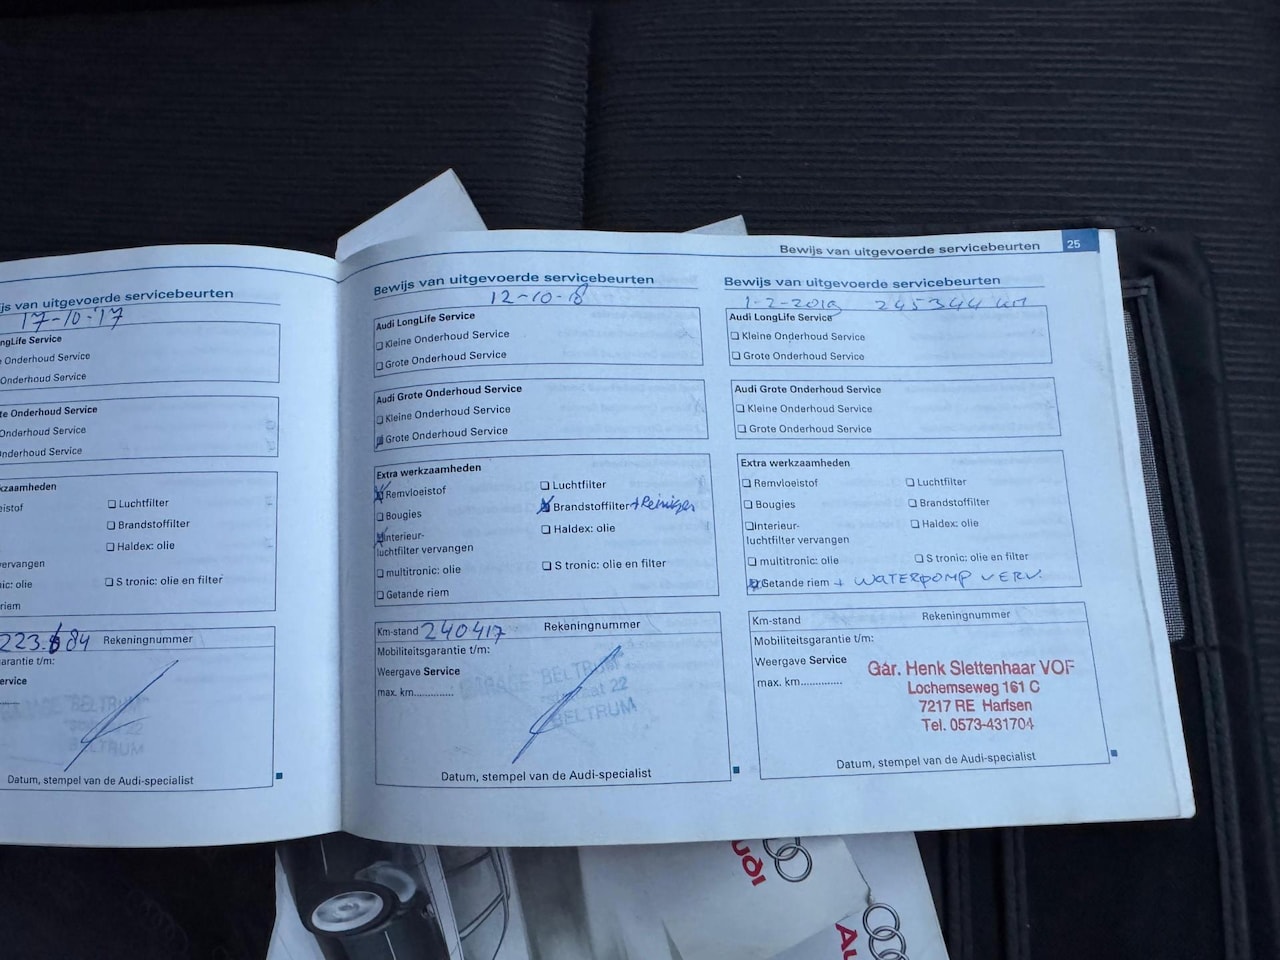 Bewijs van uitgevoerde servicebeurten 25
js van uitgevoerde servicebeurten
17-10-'17
ngLife Service
e Onderhoud Service
Onderhoud Service
te Onderhoud Service
Onderhoud Service
nderhoud Service
kzaamheden
istof
❑ Luchtfilter
❑ Brandstoffilter
❑ Haldex: olie
ervangen
ic: olie
❑ S tronic: olie en filter
riem
223.684 Rekeningnummer
arantie t/m:
ervice
BELTRUM
22
BELTRUM
Datum, stempel van de Audi-specialist
Bewijs van uitgevoerde servicebeurten
12-10-18
Audi LongLife Service
❑ Kleine Onderhoud Service
❑ Grote Onderhoud Service
Audi Grote Onderhoud Service
❑ Kleine Onderhoud Service
Grote Onderhoud Service
Extra werkzaamheden
Remvloeistof
❑ Bougies
Interieur-
luchtfilter vervangen
❑ multitronic: olie
❑ Getande riem
❑ Luchtfilter
Brandstoffilter + Reiniger
❑ Haldex: olie
❑ S tronic: olie en filter
Km-stand 240417 Rekeningnummer
Mobiliteitsgarantie t/m:
Weergave Service
max. km..............
GARAGE BELTRUM
straat 22
BELTRUM
Datum, stempel van de Audi-specialist
Bewijs van uitgevoerde servicebeurten
1-2-2019 245344 km
Audi LongLife Service
❑ Kleine Onderhoud Service
❑ Grote Onderhoud Service
Audi Grote Onderhoud Service
❑ Kleine Onderhoud Service
❑ Grote Onderhoud Service
Extra werkzaamheden
❑ Remvloeistof
❑ Bougies
❑ Interieur-
luchtfilter vervangen
❑ multitronic: olie
Getande riem + WATERPOMP VERV.
❑ Luchtfilter
❑ Brandstoffilter
❑ Haldex: olie
❑ S tronic: olie en filter
Km-stand Rekeningnummer
Mobiliteitsgarantie t/m:
Weergave Service
max. km..............
Gar. Henk Slettenhaar VOF
Lochemseweg 161 C
7217 RE Harfsen
Tel. 0573-431704
Datum, stempel van de Audi-specialist
Audi
Au